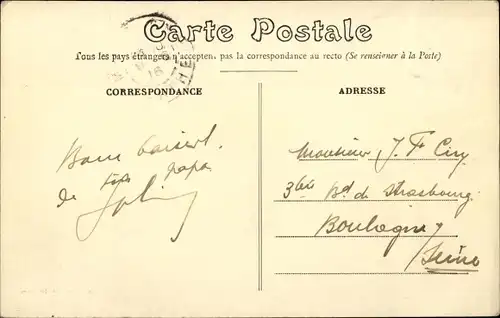 Carte Postale
Tous les pays étrangers n'acceptent pas la correspondance au recto (Se renseigner à la Poste)
CORRESPONDANCE
Bons baisers
de papa
ADRESSE
Monsieur J. F.
3 bis Bd de Strasbourg
Boulogne
Seine